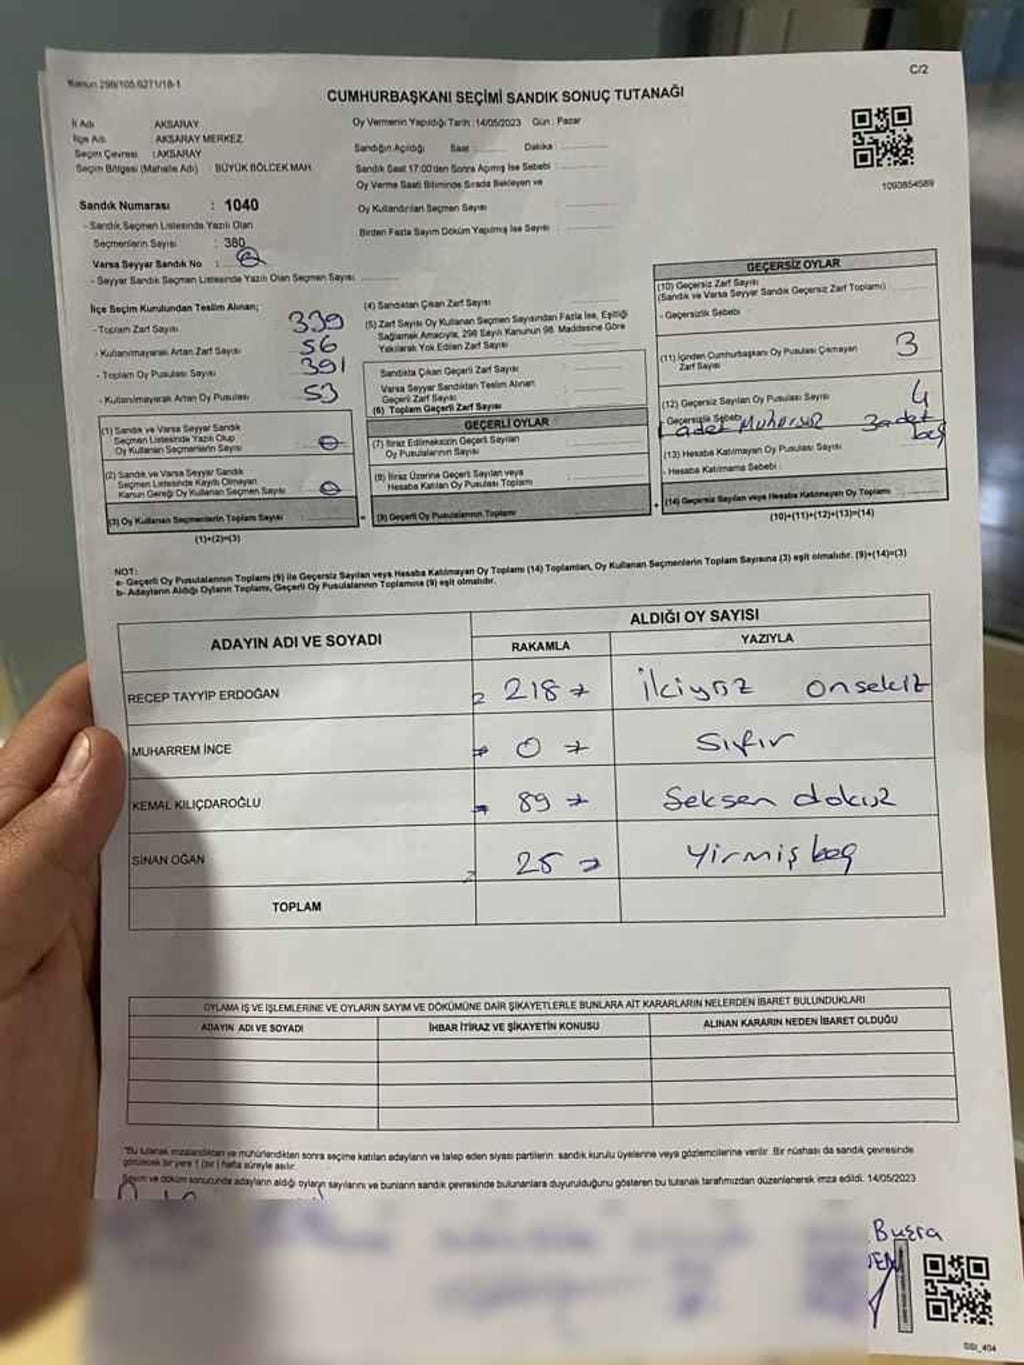 Kanun 298/105,6271/18-1
C/2
CUMHURBAŞKANI SEÇİMİ SANDIK SONUÇ TUTANAĞI
İl Adı AKSARAY
İlçe Adı AKSARAY MERKEZ
Seçim Çevresi : AKSARAY
Seçim Bölgesi (Mahalle Adı) : BÜYÜK BÖLCEK MAH.
Sandık Numarası : 1040
- Sandık Seçmen Listesinde Yazılı Olan
Seçmenlerin Sayısı : 380
Varsa Seyyar Sandık No :
- Seyyar Sandık Seçmen Listesinde Yazılı Olan Seçmen Sayısı
Oy Vermenin Yapıldığı Tarih : 14/05/2023 Gün : Pazar
Sandığın Açıldığı Saat Dakika :
Sandık Saat 17:00'den Sonra Açılmış İse Sebebi
Oy Verme Saati Bitiminde Sırada Bekleyen ve
Oy Kullandırılan Seçmen Sayısı
Birden Fazla Sayım Döküm Yapılmış İse Sayısı
1093854589
İlçe Seçim Kurulundan Teslim Alınan;
- Toplam Zarf Sayısı 339
- Kullanılmayarak Artan Zarf Sayısı 56
- Toplam Oy Pusulası Sayısı 391
- Kullanılmayarak Artan Oy Pusulası 53
(1) Sandık ve Varsa Seyyar Sandık
Seçmen Listesinde Yazılı Olup
Oy Kullanan Seçmenlerin Sayısı
(2) Sandık ve Varsa Seyyar Sandık
Seçmen Listesinde Kayıtlı Olmayan
Kanun Gereği Oy Kullanan Seçmen Sayısı
(3) Oy Kullanan Seçmenlerin Toplam Sayısı
(1)+(2)=(3)
(4) Sandıktan Çıkan Zarf Sayısı
(5) Zarf Sayısı Oy Kullanan Seçmen Sayısından Fazla İse, Eşitliği
Sağlamak Amacıyla, 298 Sayılı Kanunun 98. Maddesine Göre
Yakılarak Yok Edilen Zarf Sayısı
Sandıkta Çıkan Geçerli Zarf Sayısı
Varsa Seyyar Sandıktan Teslim Alınan
Geçerli Zarf Sayısı
(6) Toplam Geçerli Zarf Sayısı
GEÇERLİ OYLAR
(7) İtiraz Edilmeksizin Geçerli Sayılan
Oy Pusulalarının Sayısı
(8) İtiraz Üzerine Geçerli Sayılan veya
Hesaba Katılan Oy Pusulası Toplamı
(9) Geçerli Oy Pusulalarının Toplamı
GEÇERSİZ OYLAR
(10) Geçersiz Zarf Sayısı
(Sandık ve Varsa Seyyar Sandık Geçersiz Zarf Toplamı)
- Geçersizlik Sebebi
(11) İçinden Cumhurbaşkanı Oy Pusulası Çıkmayan
Zarf Sayısı 3
(12) Geçersiz Sayılan Oy Pusulası Sayısı 4
- Geçersizlik Sebebi
1 adet Mühürsüz 3 adet
boş
(13) Hesaba Katılmayan Oy Pusulası Sayısı
- Hesaba Katılmama Sebebi
(14) Geçersiz Sayılan veya Hesaba Katılmayan Oy Toplamı
(10)+(11)+(12)+(13)=(14)
NOT:
a- Geçerli Oy Pusulalarının Toplamı (9) ile Geçersiz Sayılan veya Hesaba Katılmayan Oy Toplamı (14) Toplamları, Oy Kullanan Seçmenlerin Toplam Sayısına (3) eşit olmalıdır. (9)+(14)=(3)
b- Adayların Aldığı Oyların Toplamı, Geçerli Oy Pusulalarının Toplamına (9) eşit olmalıdır.
ADAYIN ADI VE SOYADI
ALDIĞI OY SAYISI
RAKAMLA YAZIYLA
RECEP TAYYİP ERDOĞAN 218 ikiyüz onsekiz
MUHARREM İNCE 0 sıfır
KEMAL KILIÇDAROĞLU 89 Seksen dokuz
SİNAN OĞAN 25 Yirmiş beş
TOPLAM
OYLAMA İŞ VE İŞLEMLERİNE VE OYLARIN SAYIM VE DÖKÜMÜNE DAİR ŞİKAYETLERLE BUNLARA AİT KARARLARIN NELERDEN İBARET BULUNDUKLARI
ADAYIN ADI VE SOYADI İHBAR İTİRAZ VE ŞİKAYETİN KONUSU ALINAN KARARIN NEDEN İBARET OLDUĞU
*Bu tutanak imzalandıktan ve mühürlendikten sonra seçime katılan adayların ve talep eden siyasi partilerin sandık kurulu üyelerine veya gözlemcilerine verilir. Bir nüshası da sandık çevresinde
görülecek bir yere 1 (bir) hafta süreyle asılır.
Sayım ve döküm sonucunda adayların aldığı oyların sayılarını ve bunların sandık çevresinde bulunanlara duyurulduğunu gösteren bu tutanak tarafımızdan düzenlenerek imza edildi. 14/05/2023
Buşra
SSI_404